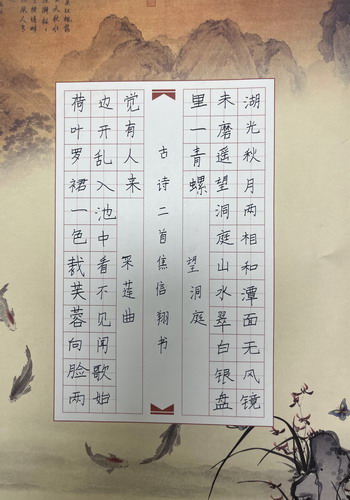 湖光秋月两相和潭面无风镜
未磨遥望洞庭山水翠白银盘
里一青螺
望洞庭
古诗二首焦信翔书
荷叶罗裙一色裁芙蓉向脸两
边开乱入池中看不见闻歌始
觉有人来
采莲曲